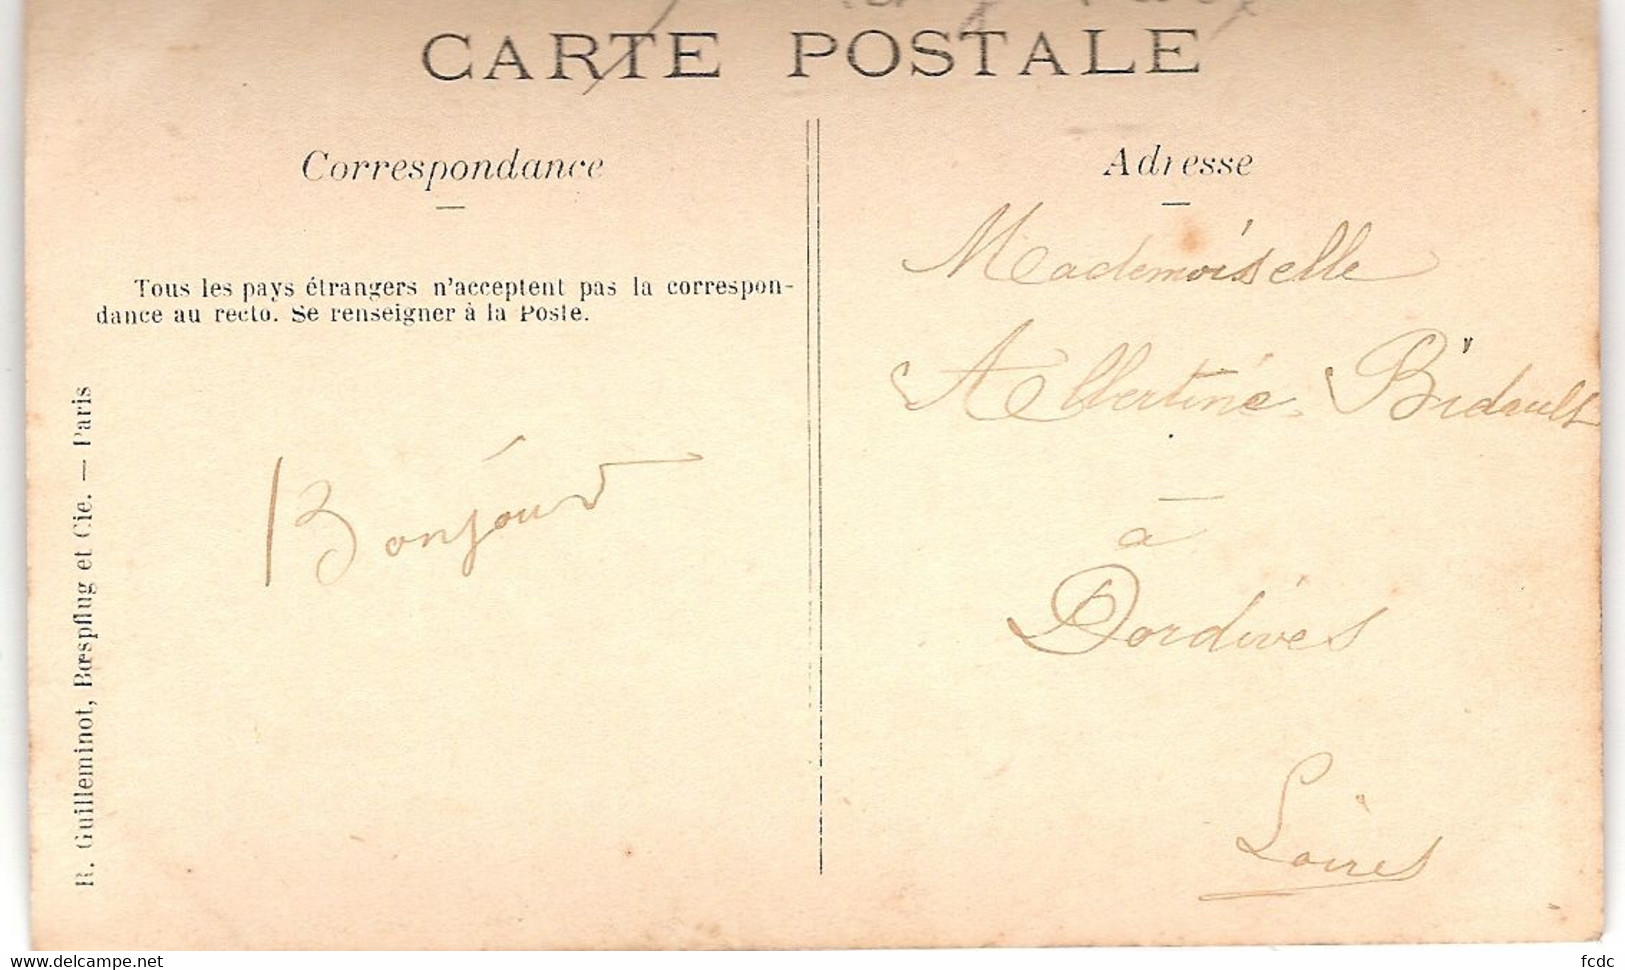 CARTE POSTALE
Correspondance
Tous les pays étrangers n'acceptent pas la correspon-
dance au recto. Se renseigner à la Poste.
Bonjour
R. Guilleminot, Bœspflug et Cie. — Paris
Adresse
Mademoiselle
Albertine Bidault
à
Dordives
Loiret
www.delcampe.net
fcdc